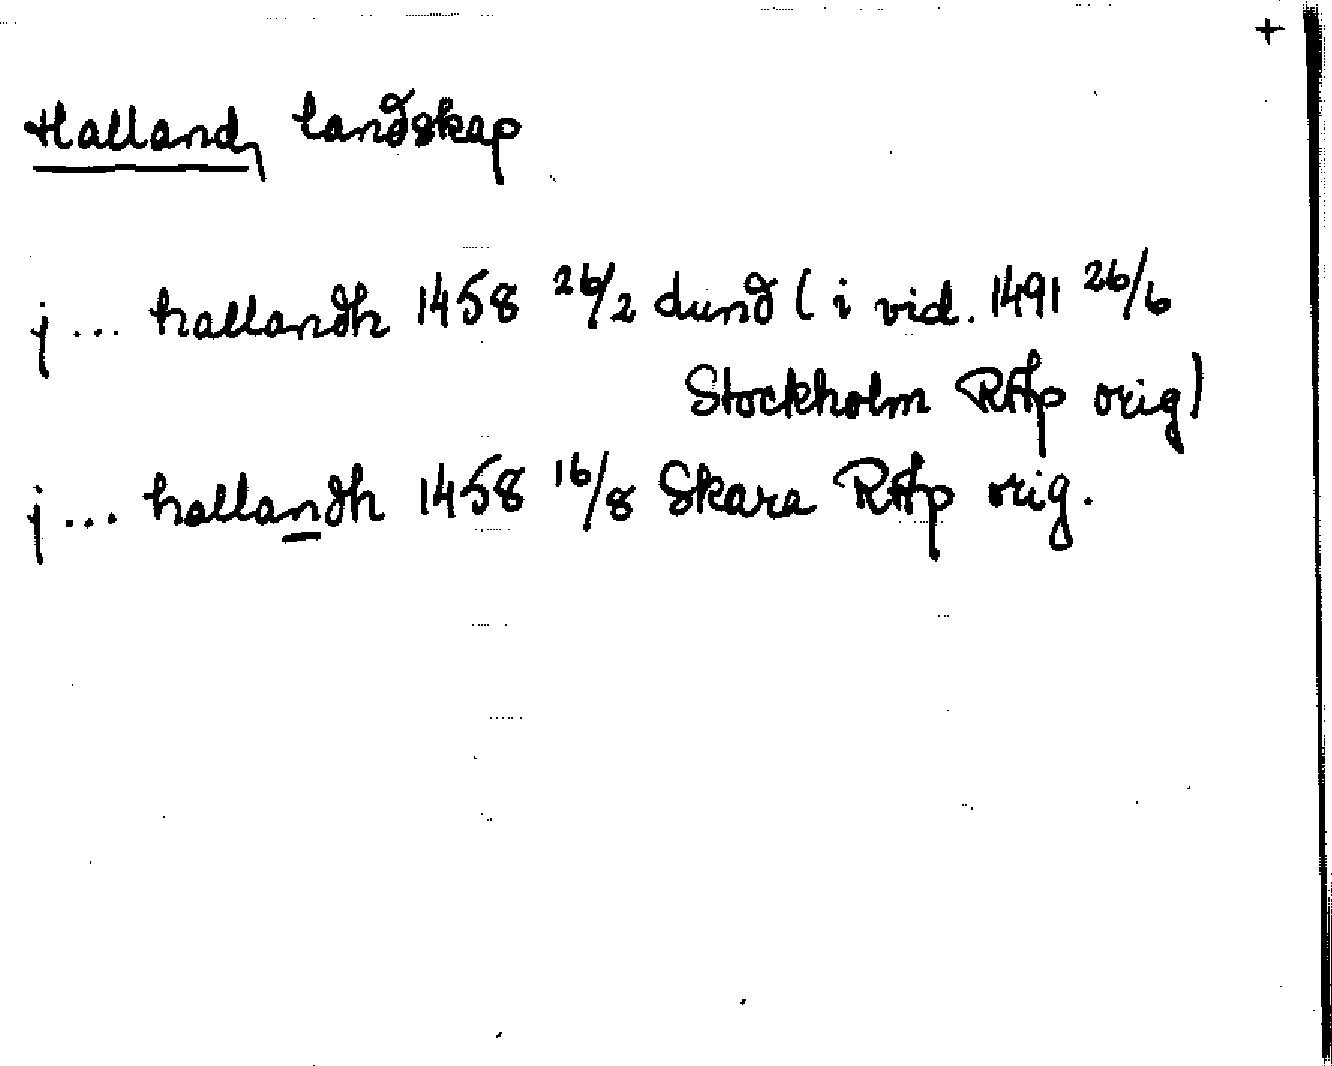 +
Halland, landskap
j... hallandh 1458 26/2 Lund (i vid. 1491 26/6
Stockholm RAp orig)
j... hallandh 1458 16/8 Skara RAp orig.